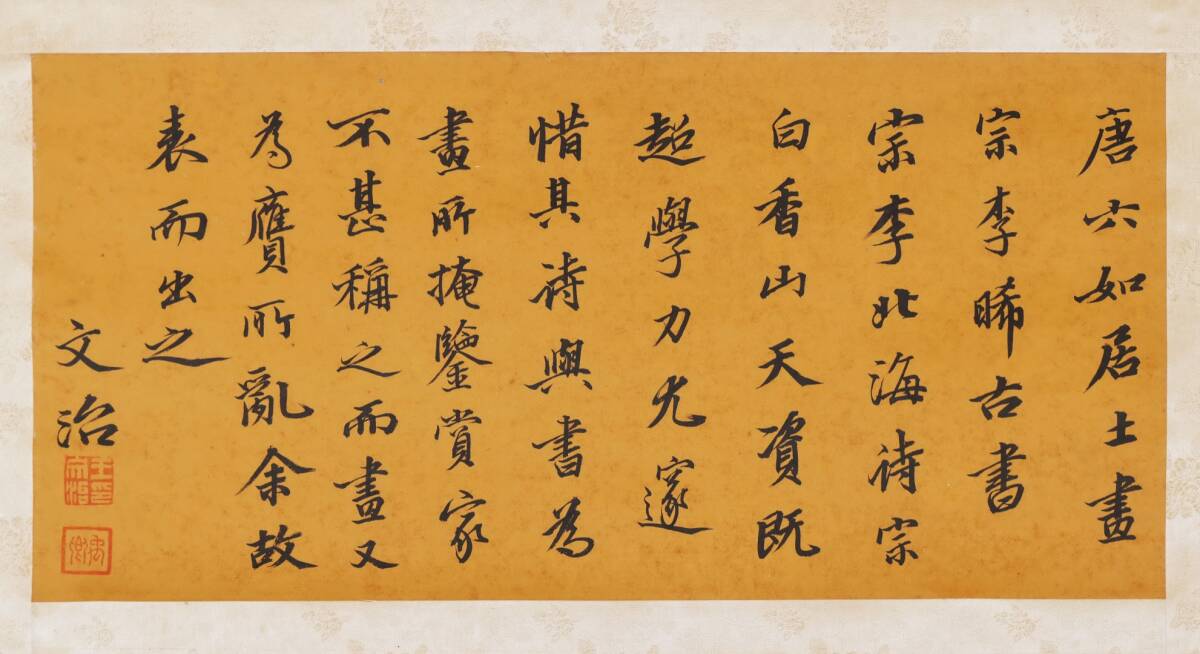 唐六如居士畫
宗李晞古書
宗李北海詩宗
白香山天資既
超學力尤邃
惜其詩與書為
畫所掩鑒賞家
不甚稱之而畫又
為贋所亂余故
表而出之
文治
王文治印
禹卿